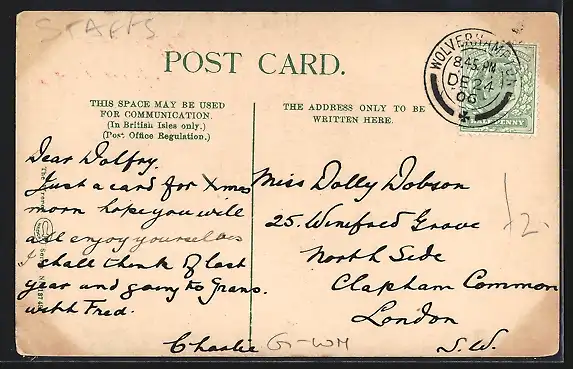 STAFFS
POST CARD.
THIS SPACE MAY BE USED
FOR COMMUNICATION.
(In British Isles only.)
(Post Office Regulation.)
THE ADDRESS ONLY TO BE
WRITTEN HERE.
WOLVERHAMPTON
8.45 PM
DE 24
06
HALFPENNY
Dear Dolfry.
Just a card for Xmas
morn hope you will
all enjoy yourselves
I shall think of last
year and going to Grans.
with Fred.
Charlie
Miss Dolly Dobson
25. Winifred Grove
North Side
Clapham Common
London
S.W.
G-WM